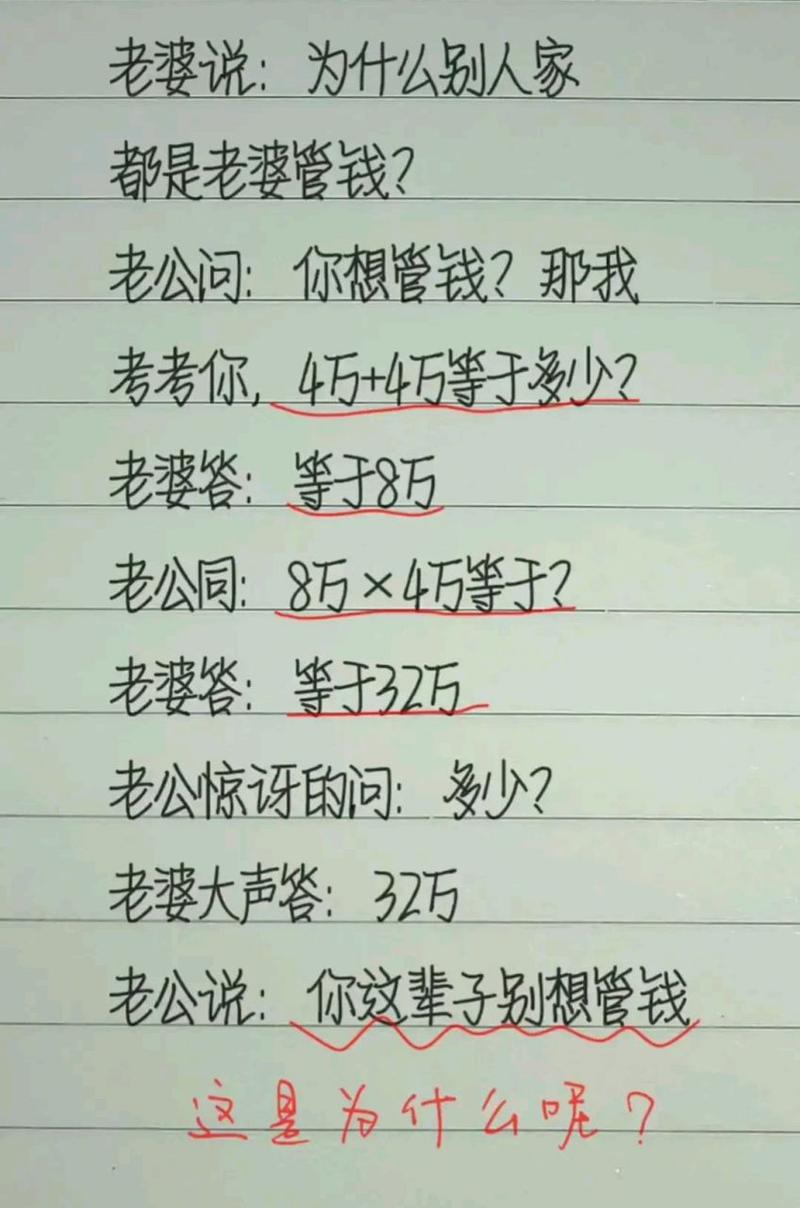 老婆说：为什么别人家
都是老婆管钱？
老公问：你想管钱？那我
考考你，4万+4万等于多少？
老婆答：等于8万
老公同：8万×4万等于？
老婆答：等于32万
老公惊讶的问：多少？
老婆大声答：32万
老公说：你这辈子别想管钱
这是为什么呢？